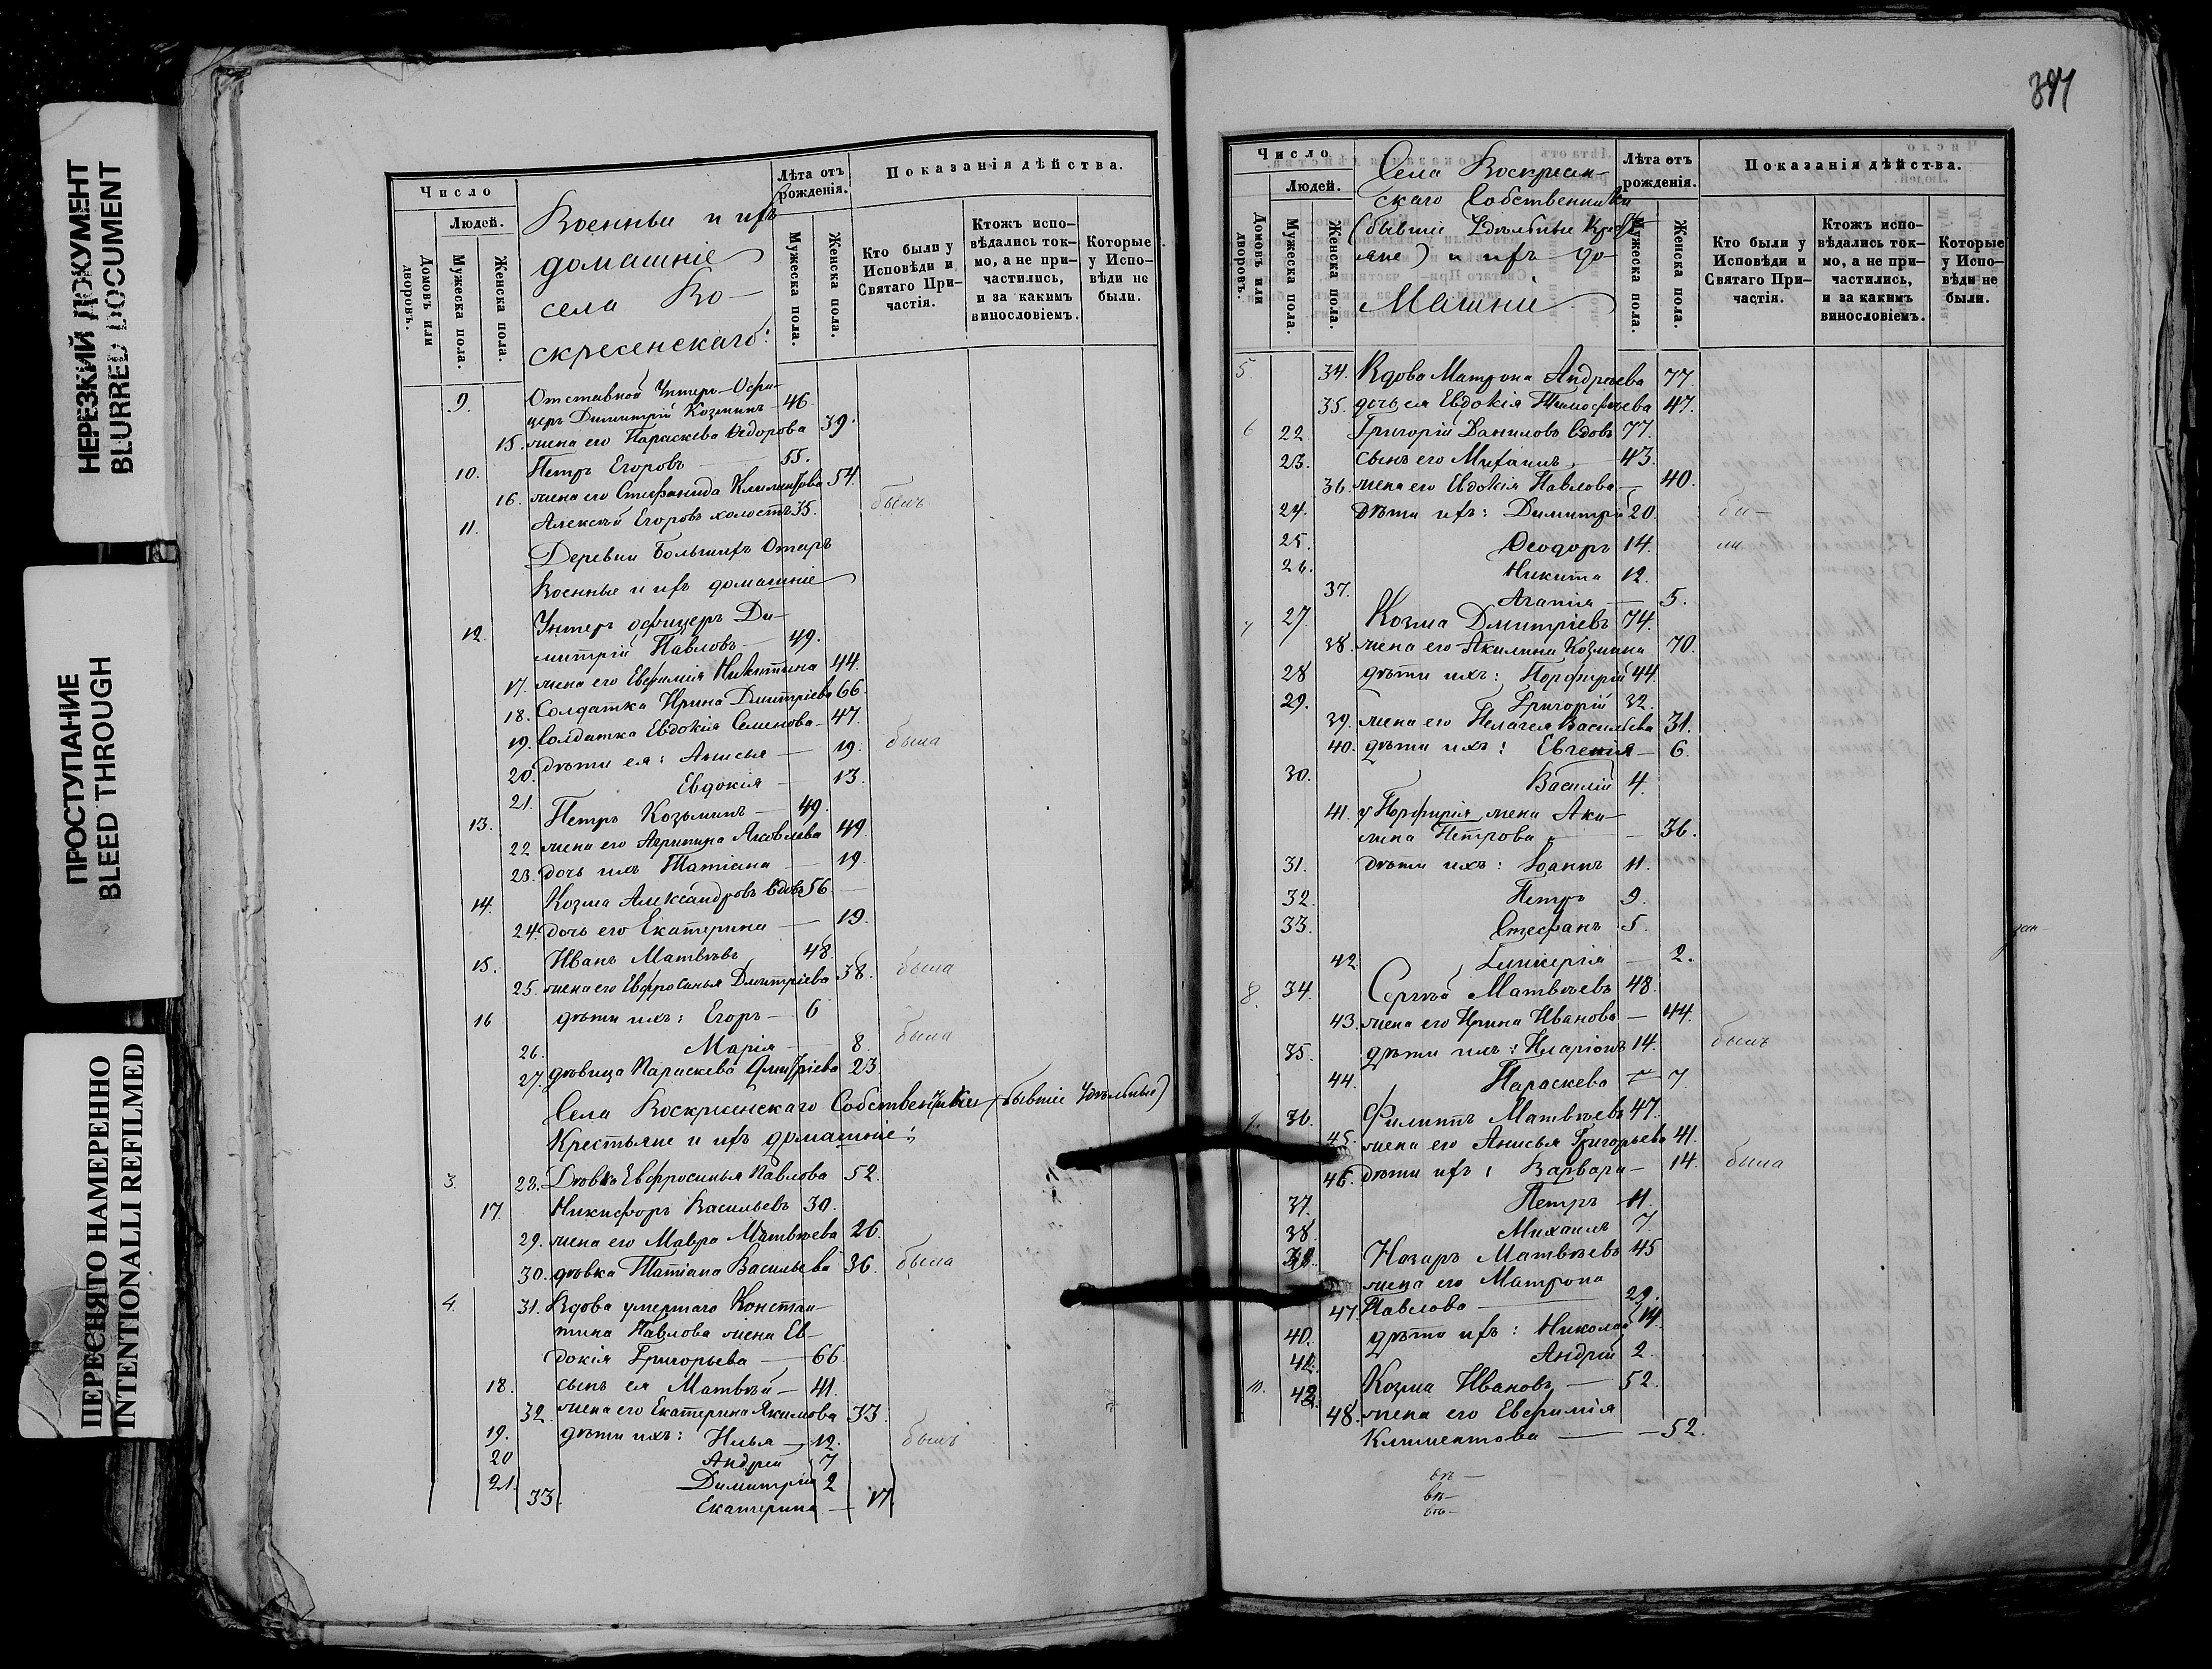 НЕРЕЗКИЙ ДОКУМЕНТ
BLURRED DOCUMENT
ПРОСТУПАНИЕ
BLEED THROUGH
ПЕРЕСНЯТО НАМЕРЕННО
INTENTIONALLI REFILMED
Число
Людей.
Домовъ или дворовъ.
Мужеска пола.
Женска пола.
Военные и ихъ
домашніе
села Во-
скресенскаго:
Лѣта отъ рожденія.
Мужеска пола.
Женска пола.
Показанія дѣйства.
Кто были у Исповѣди и Святаго При-частія.
Ктожъ испо-вѣдались ток-мо, а не при-частились, и за какимъ винословіемъ.
Которые у Испо-вѣди не были.
9. Отставной Унтеръ-Офи-
церъ Димитрій Козминъ 46.
15. жена его Параскева Ѳедорова 39.
10. Петръ Егоровъ 55.
16. жена его Стефанида Климентова 54.
11. Алексѣй Егоровъ холостъ 35. былъ
Деревни Большихъ Отаръ
Военные и ихъ домашніе
12. Унтеръ офицеръ Ди-
митрій Павловъ 49.
17. жена его Евфимія Никитина 44.
18. Солдатка Ирина Дмитріева 66.
19. Солдатка Евдокія Семенова 47.
20. дѣти ея: Анисья 19. была
21. Евдокія 13.
13. Петръ Козьминъ 49.
22 жена его Агрипина Яковлева 49.
23. дочь ихъ Татіана 19.
14. Козма Александровъ вдовъ 56
24. дочь его Екатерина 19.
15. Иванъ Матвѣевъ 48.
25. жена его Евфросинья Дмитріева 38. была
16 дѣти ихъ: Егоръ 6
26. Марія 8. была
27. дѣвица Параскева Дмитріева 23.
Села Воскресенскаго Собственники (бывшіе Удѣльные)
Крестьяне и ихъ домашніе:
3. 28. Дѣвка Евфросинья Павлова 52.
17. Никифоръ Васильевъ 30.
29. жена его Мавра Матвѣева 26.
30. дѣвка Татіана Васильева 36. была
4. 31. Вдова умершаго Констан-
тина Павлова жена Ев-
докія Григорьева 66.
18. сынъ ея Матвѣй 41.
32. жена его Екатерина Якимова 33.
19. дѣти ихъ: Илья 12. былъ
20 Андрей 7
21. Димитрій 2
33. Екатерина 17.
Число
Людей.
Домовъ или дворовъ.
Мужеска пола.
Женска пола.
Села Воскресен-
скаго Собственники
(бывшіе Удѣльные Кресть-
яне) и ихъ до-
машніе
Лѣта отъ рожденія.
Мужеска пола.
Женска пола.
Показанія дѣйства.
Кто были у Исповѣди и Святаго При-частія.
Ктожъ испо-вѣдались ток-мо, а не при-частились, и за какимъ винословіемъ.
Которые у Испо-вѣди не были.
5. 34. Вдова Матрона Андреева 77.
35. дочь ея Евдокія Тимофѣева 47.
6 22. Григорій Даниловъ вдовъ 77.
23. сынъ его Михаилъ 43.
36. жена его Евдокія Павлова 40.
24. дѣти ихъ: Димитрій 20. бы-
25. Ѳеодоръ 14. ли
26. Никита 12.
37. Агапія 5.
7 27. Козма Дмитріевъ 74.
38. жена его Акилина Козмина 70.
28 дѣти ихъ: Порфирій 44.
29. Григорій 32.
39. жена его Пелагея Васильева 31.
40. дѣти ихъ: Евгенія 6.
30. Василій 4.
41. у Порфирія жена Аки-
лина Петрова 36.
31. дѣти ихъ: Іоаннъ 11.
32. Петръ 9.
33. Стефанъ 5.
42. Гликерія 2.
8. 34. Сергѣй Матвѣевъ 48.
43. жена его Ирина Иванова 44.
35. дѣти ихъ: Иларіонъ 14. былъ
44. Параскева 7.
9. 36. Филиппъ Матвѣевъ 47.
45. жена его Анисья Григорьева 41.
46. дѣти ихъ: Варвара 14. была
37. Петръ 11.
38. Михаилъ 7.
39. Назаръ Матвѣевъ 45
жена его Матрона
47. Павлова 29.
40. дѣти ихъ: Николай 14.
41. Андрей 2.
10. 42. Козма Ивановъ 52.
48. жена его Евфимія
Климентова 52.